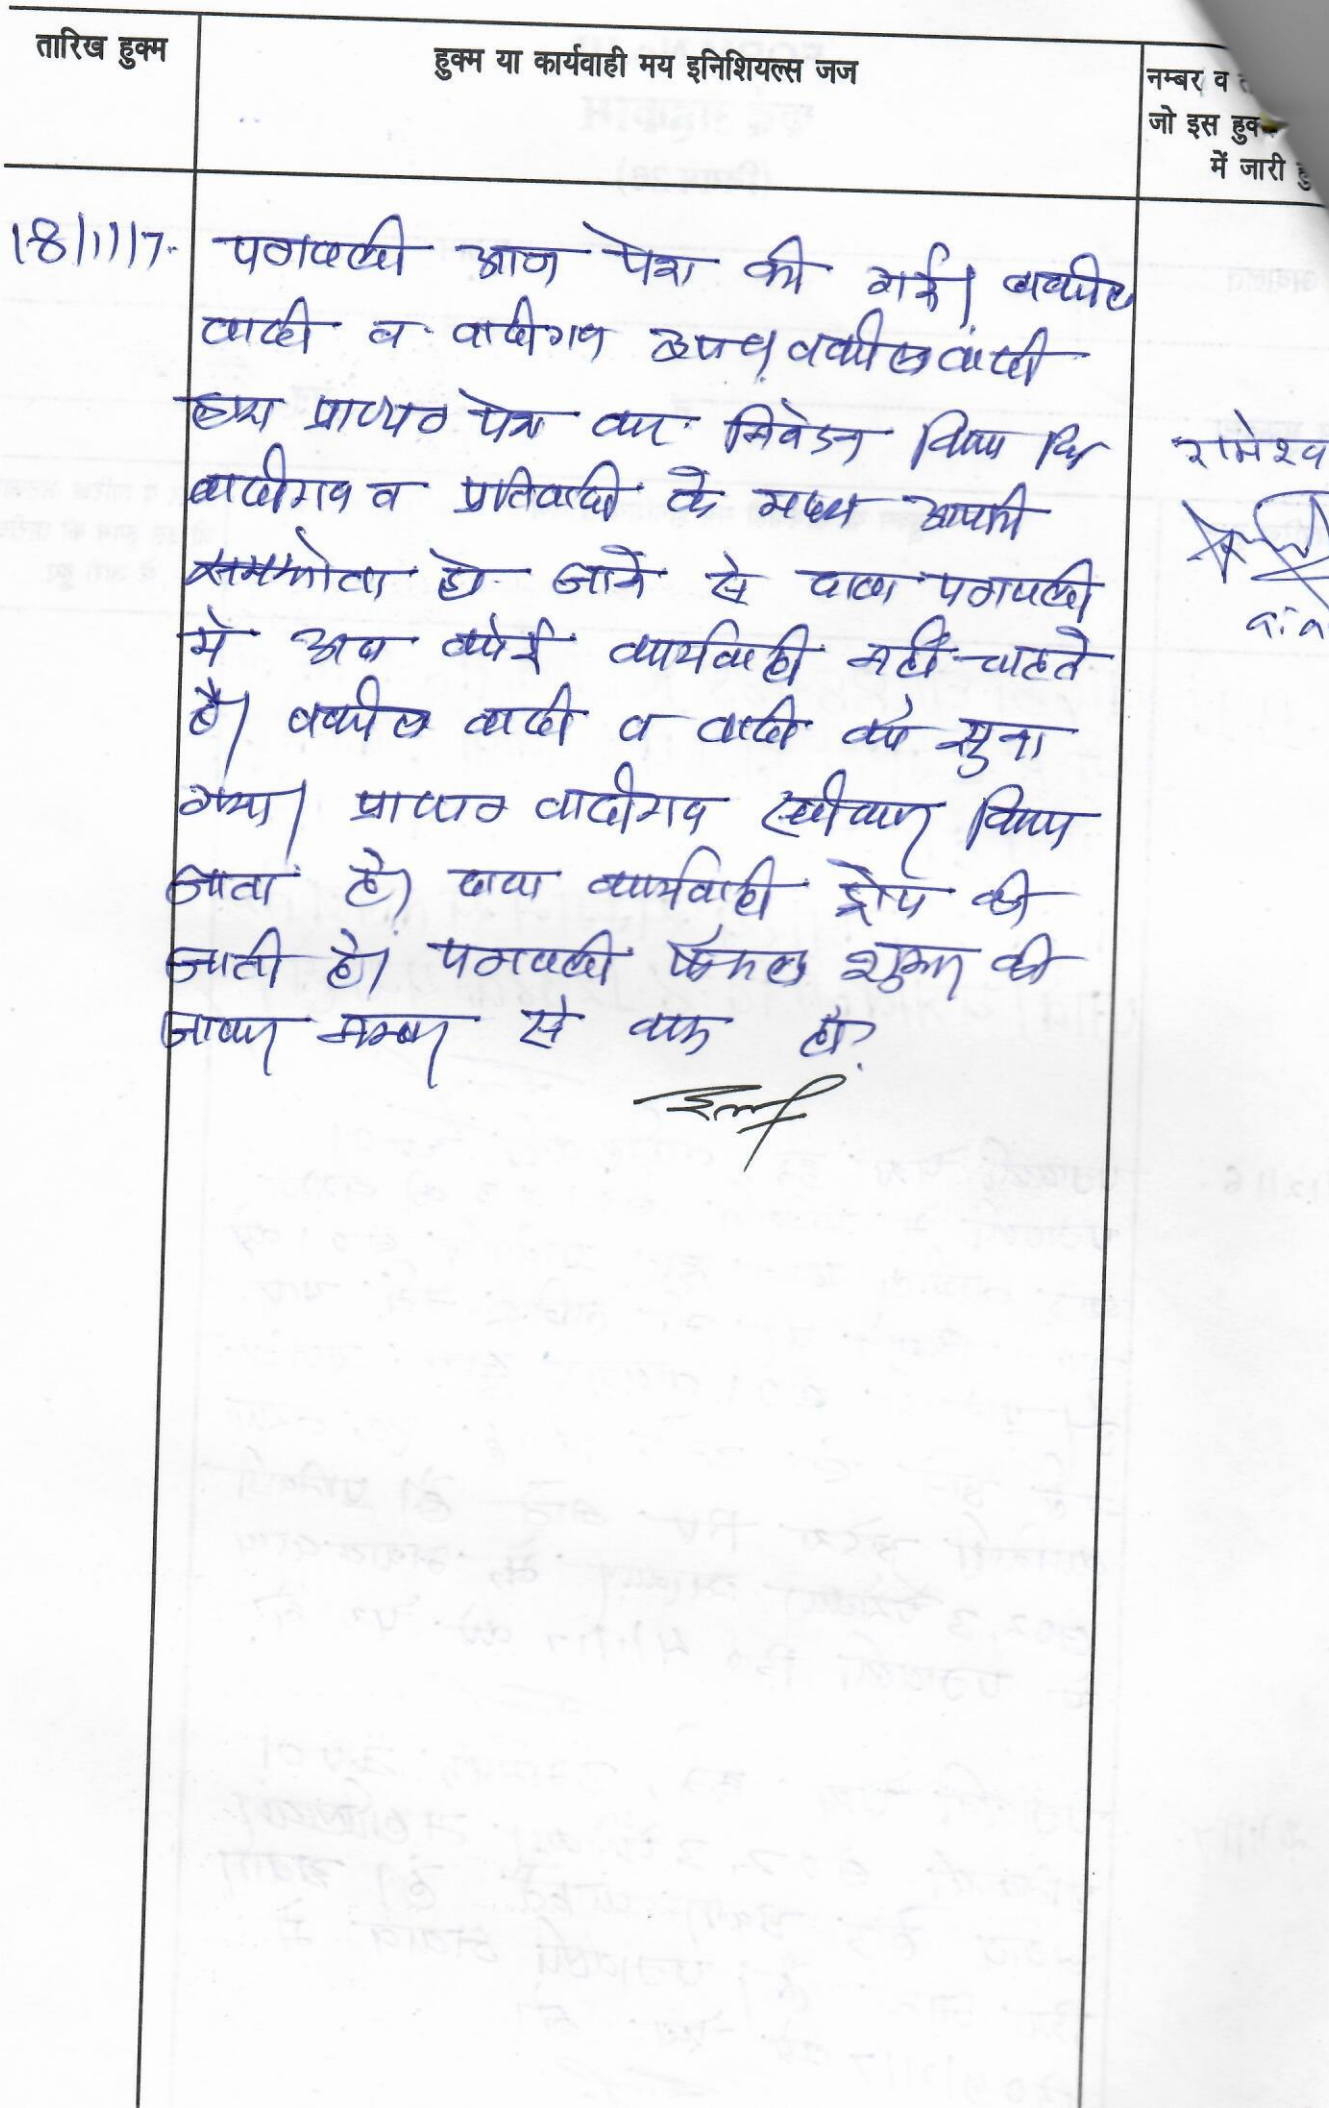 तारिख हुक्म
हुक्म या कार्यवाही मय इनिशियल्स जज
नम्बर व
जो इस हुक्
में जारी हु
18/1/17- पत्रावली आज पेश की गई। वकील
वादी व वादीगण उपस्थित वकील वादी
प्रार्थना पत्र कर निवेदन किया कि
वादीगण व प्रतिवादी के मध्य आपसी
समझौता हो जाने से दावा पत्रावली
में अब कोई कार्यवाही नहीं चाहते
है। वकील वादी व वादी को सुना
गया। वादीगण स्वीकार किया
जाता है। दावा कार्यवाही ड्रोप की
जाती है। पत्रावली फैसल शुमार की
जाकर नम्बर से कम हो।
रामेश्व